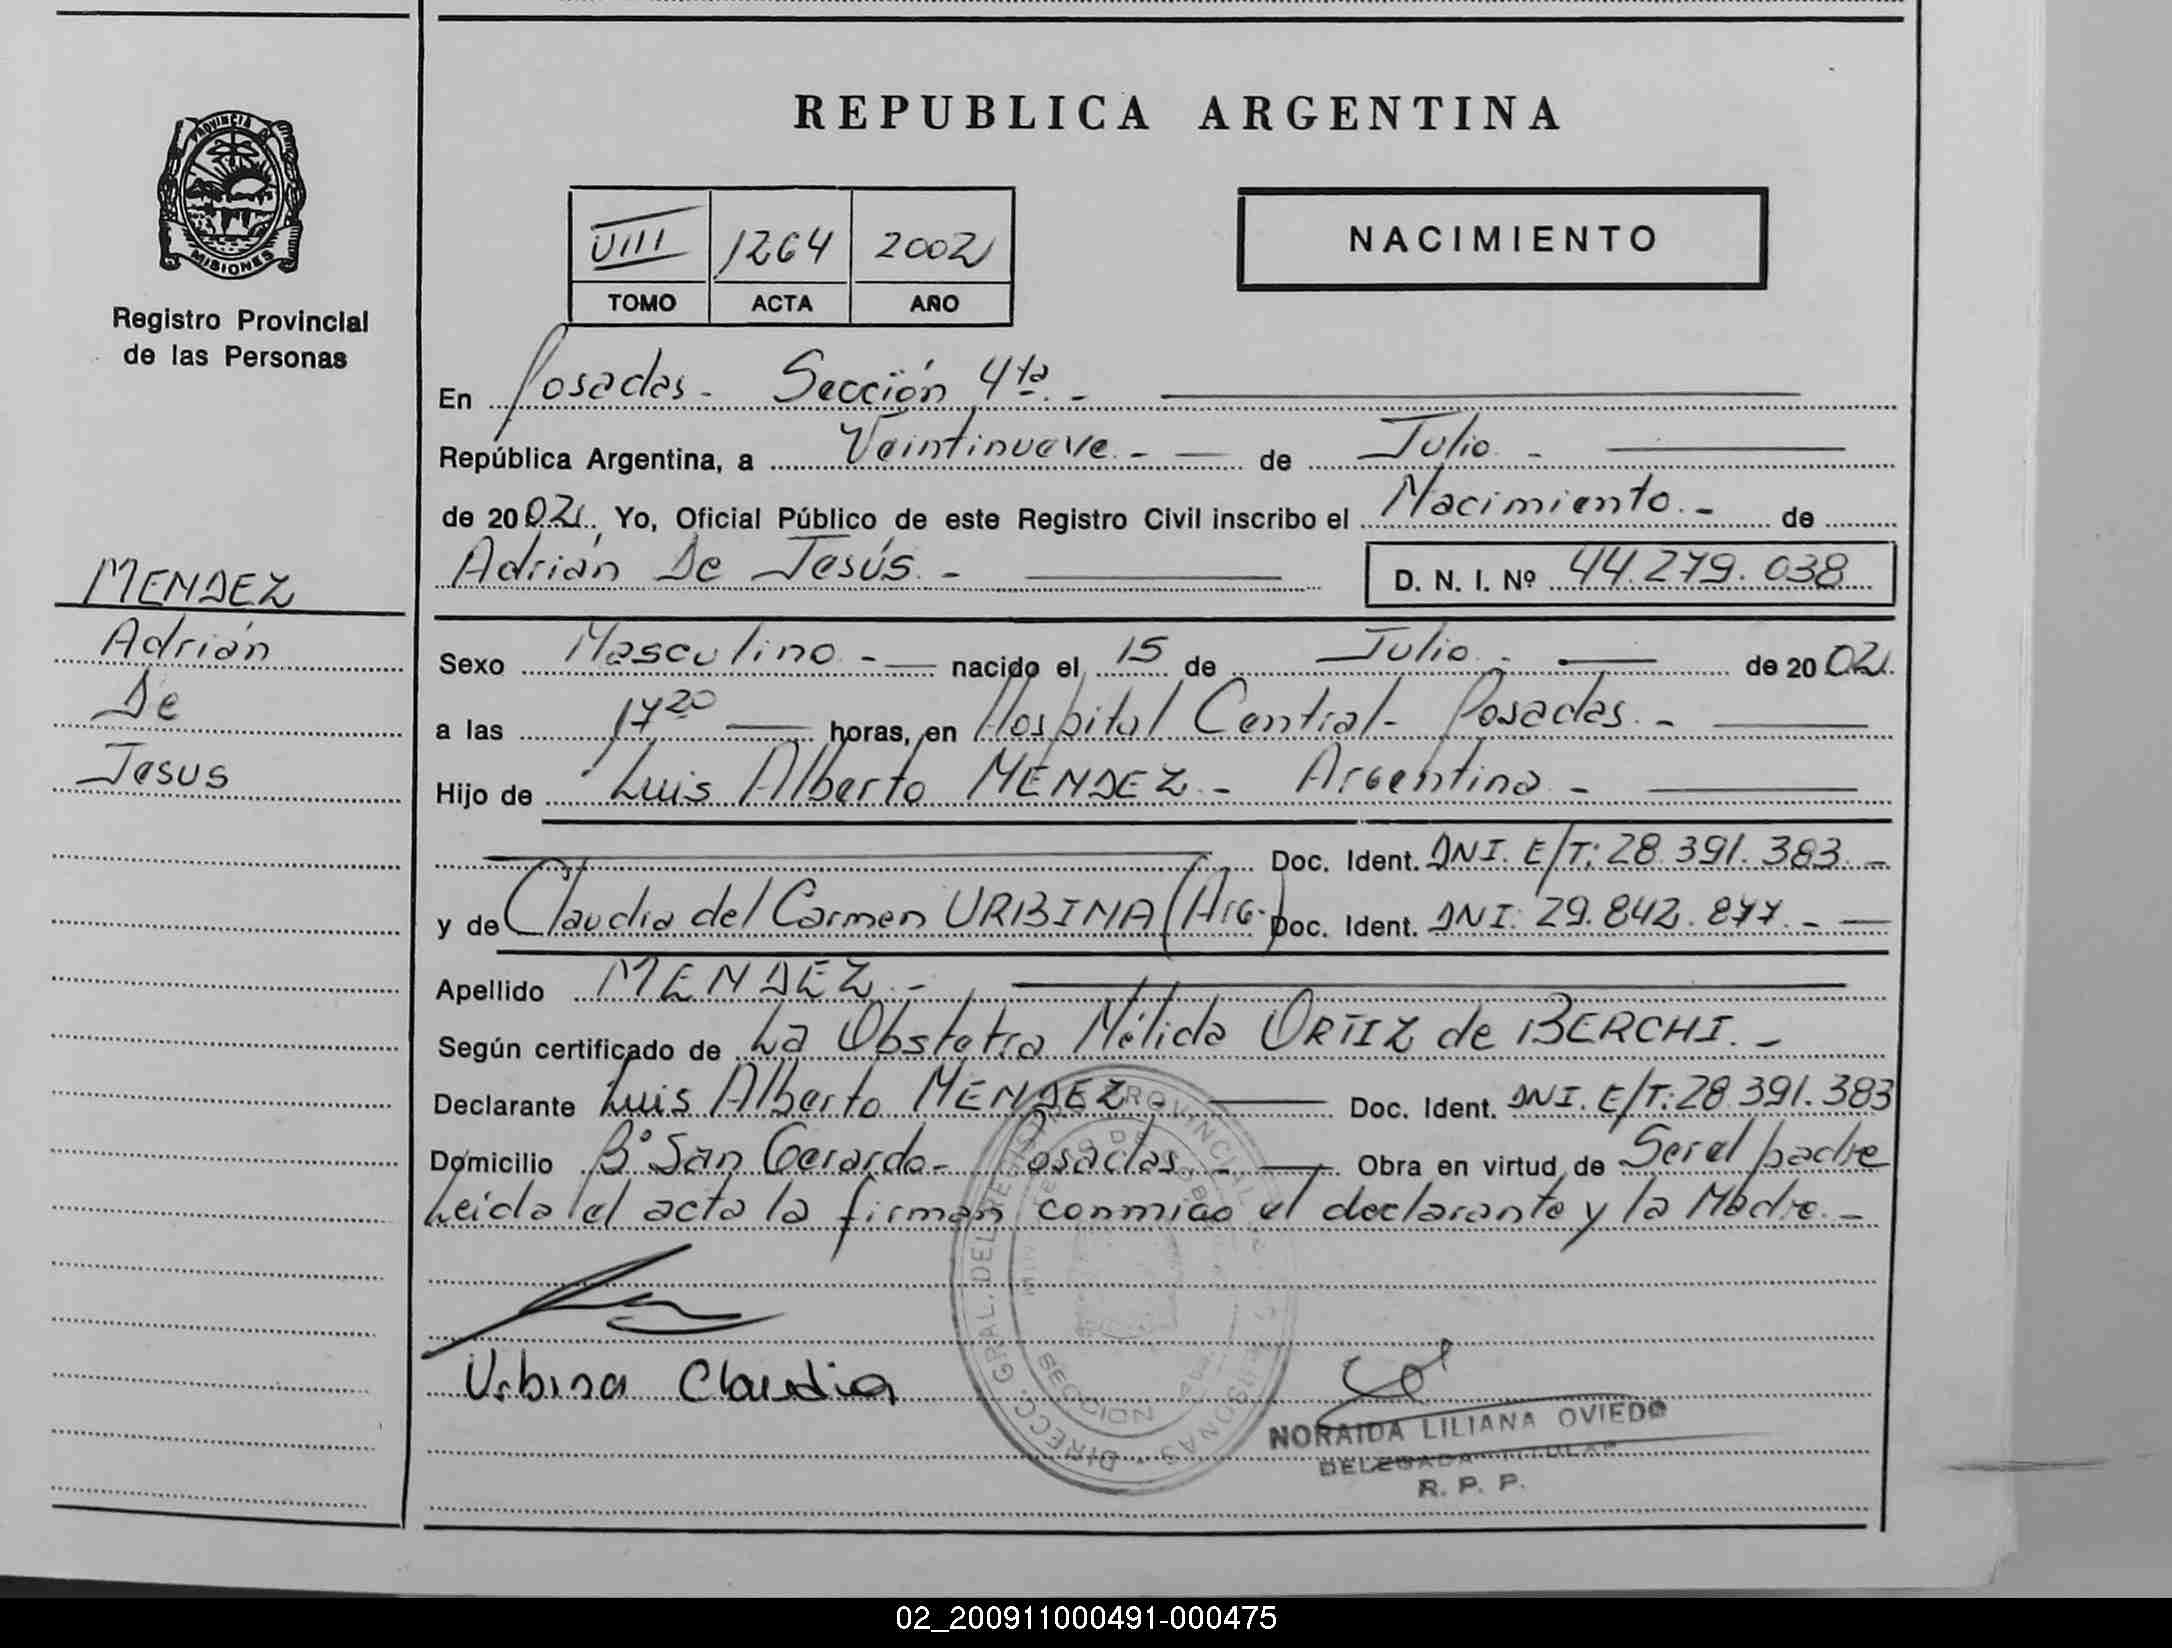 PROVINCIA DE
MISIONES
Registro Provincial
de las Personas
MENDEZ
Adrián
De
Jesus
REPUBLICA ARGENTINA
VIII 1264 2002
TOMO ACTA AÑO
NACIMIENTO
En Posadas - Sección 4ta. -
República Argentina, a Veintinueve. - de Julio -
de 2002, Yo, Oficial Público de este Registro Civil inscribo el Nacimiento. - de
Adrián De Jesús. - D. N. I. Nº 44.279.038
Sexo Masculino - nacido el 15 de Julio. - de 2002.
a las 17 20 horas, en Hospital Central - Posadas. -
Hijo de Luis Alberto MENDEZ - Argentina -
Doc. Ident. DNI. E/T: 28.391.383. -
y de Claudia del Carmen URBINA (Arg.) Doc. Ident. DNI: 29.842.877. -
Apellido MENDEZ. -
Según certificado de La Obstetra Nélida ORTIZ de BERCHI. -
Declarante Luis Alberto MENDEZ Doc. Ident. DNI. E/T: 28.391.383
Domicilio Bº San Gerardo - Posadas. - Obra en virtud de Ser el padre
Leída el acta la firman conmigo el declarante y la Madre. -
Urbina Claudia
DIRECC. GRAL. DEL REGISTRO PROVINCIAL DE LAS PERSONAS
SECCION
NORAIDA LILIANA OVIEDO
DELEGADA TITULAR
R. P. P.
02_200911000491-000475